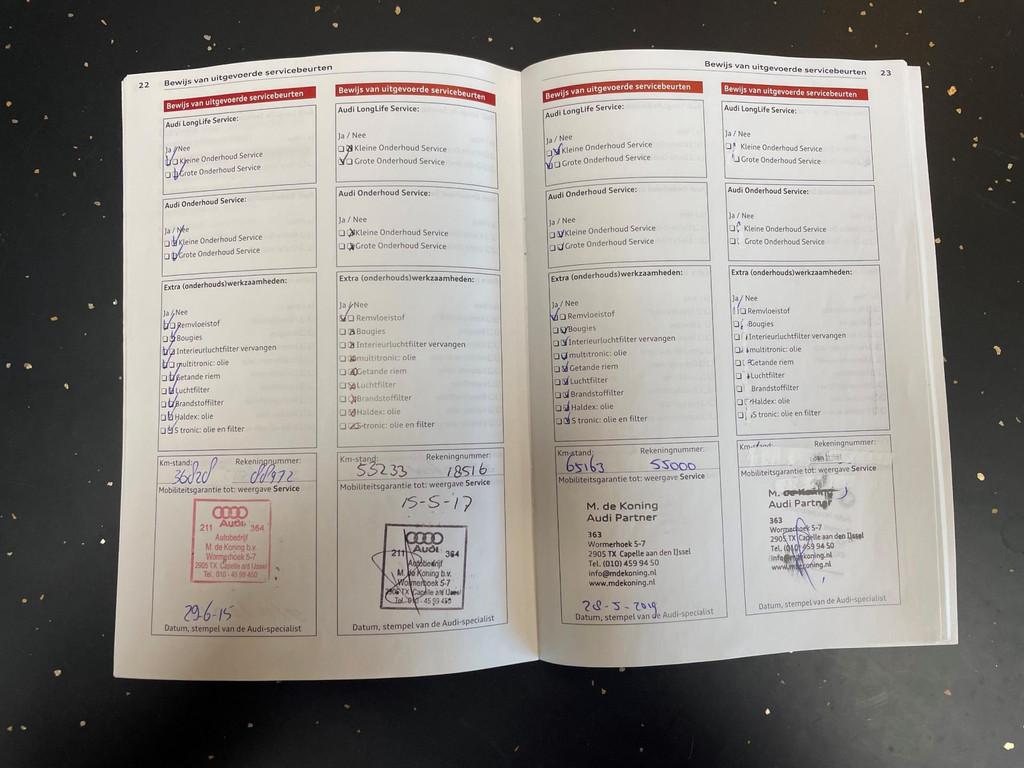 22 Bewijs van uitgevoerde servicebeurten
Bewijs van uitgevoerde servicebeurten
Audi LongLife Service:
Ja / Nee
Kleine Onderhoud Service
Grote Onderhoud Service
Audi Onderhoud Service:
Ja / Nee
Kleine Onderhoud Service
Grote Onderhoud Service
Extra (onderhouds)werkzaamheden:
Ja / Nee
Remvloeistof
Bougies
Interieurluchtfilter vervangen
multitronic: olie
Getande riem
Luchtfilter
Brandstoffilter
Haldex: olie
S tronic: olie en filter
Km-stand: Rekeningnummer:
Mobiliteitsgarantie tot: weergave Service
Audi
211 364
Autobedrijf
M. de Koning b.v.
Wormerhoek 5-7
2905 TX Capelle a/d IJssel
Tel. 010 - 45 99 450
29-6-15
Datum, stempel van de Audi-specialist
Bewijs van uitgevoerde servicebeurten
Audi LongLife Service:
Ja / Nee
Kleine Onderhoud Service
Grote Onderhoud Service
Audi Onderhoud Service:
Ja / Nee
Kleine Onderhoud Service
Grote Onderhoud Service
Extra (onderhouds)werkzaamheden:
Ja / Nee
Remvloeistof
Bougies
Interieurluchtfilter vervangen
multitronic: olie
Getande riem
Luchtfilter
Brandstoffilter
Haldex: olie
S tronic: olie en filter
Km-stand: Rekeningnummer:
55233 18516
Mobiliteitsgarantie tot: weergave Service
15-5-17
Audi
211 364
Autobedrijf
M. de Koning b.v.
Wormerhoek 5-7
2905 TX Capelle a/d IJssel
Tel. 010 - 45 99 450
Datum, stempel van de Audi-specialist
Bewijs van uitgevoerde servicebeurten 23
Bewijs van uitgevoerde servicebeurten
Audi LongLife Service:
Ja / Nee
Kleine Onderhoud Service
Grote Onderhoud Service
Audi Onderhoud Service:
Ja / Nee
Kleine Onderhoud Service
Grote Onderhoud Service
Extra (onderhouds)werkzaamheden:
Ja / Nee
Remvloeistof
Bougies
Interieurluchtfilter vervangen
multitronic: olie
Getande riem
Luchtfilter
Brandstoffilter
Haldex: olie
S tronic: olie en filter
Km-stand: Rekeningnummer:
65163 55000
Mobiliteitsgarantie tot: weergave Service
M. de Koning
Audi Partner
363
Wormerhoek 5-7
2905 TX Capelle aan den IJssel
Tel. (010) 459 94 50
info@mdekoning.nl
www.mdekoning.nl
28-5-2019
Datum, stempel van de Audi-specialist
Bewijs van uitgevoerde servicebeurten
Audi LongLife Service:
Ja / Nee
Kleine Onderhoud Service
Grote Onderhoud Service
Audi Onderhoud Service:
Ja / Nee
Kleine Onderhoud Service
Grote Onderhoud Service
Extra (onderhouds)werkzaamheden:
Ja / Nee
Remvloeistof
Bougies
Interieurluchtfilter vervangen
multitronic: olie
Getande riem
Luchtfilter
Brandstoffilter
Haldex: olie
S tronic: olie en filter
Km-stand: Rekeningnummer:
Mobiliteitsgarantie tot: weergave Service
M. de Koning
Audi Partner
363
Wormerhoek 5-7
2905 TX Capelle aan den IJssel
Tel. (010) 459 94 50
info@mdekoning.nl
www.mdekoning.nl
Datum, stempel van de Audi-specialist